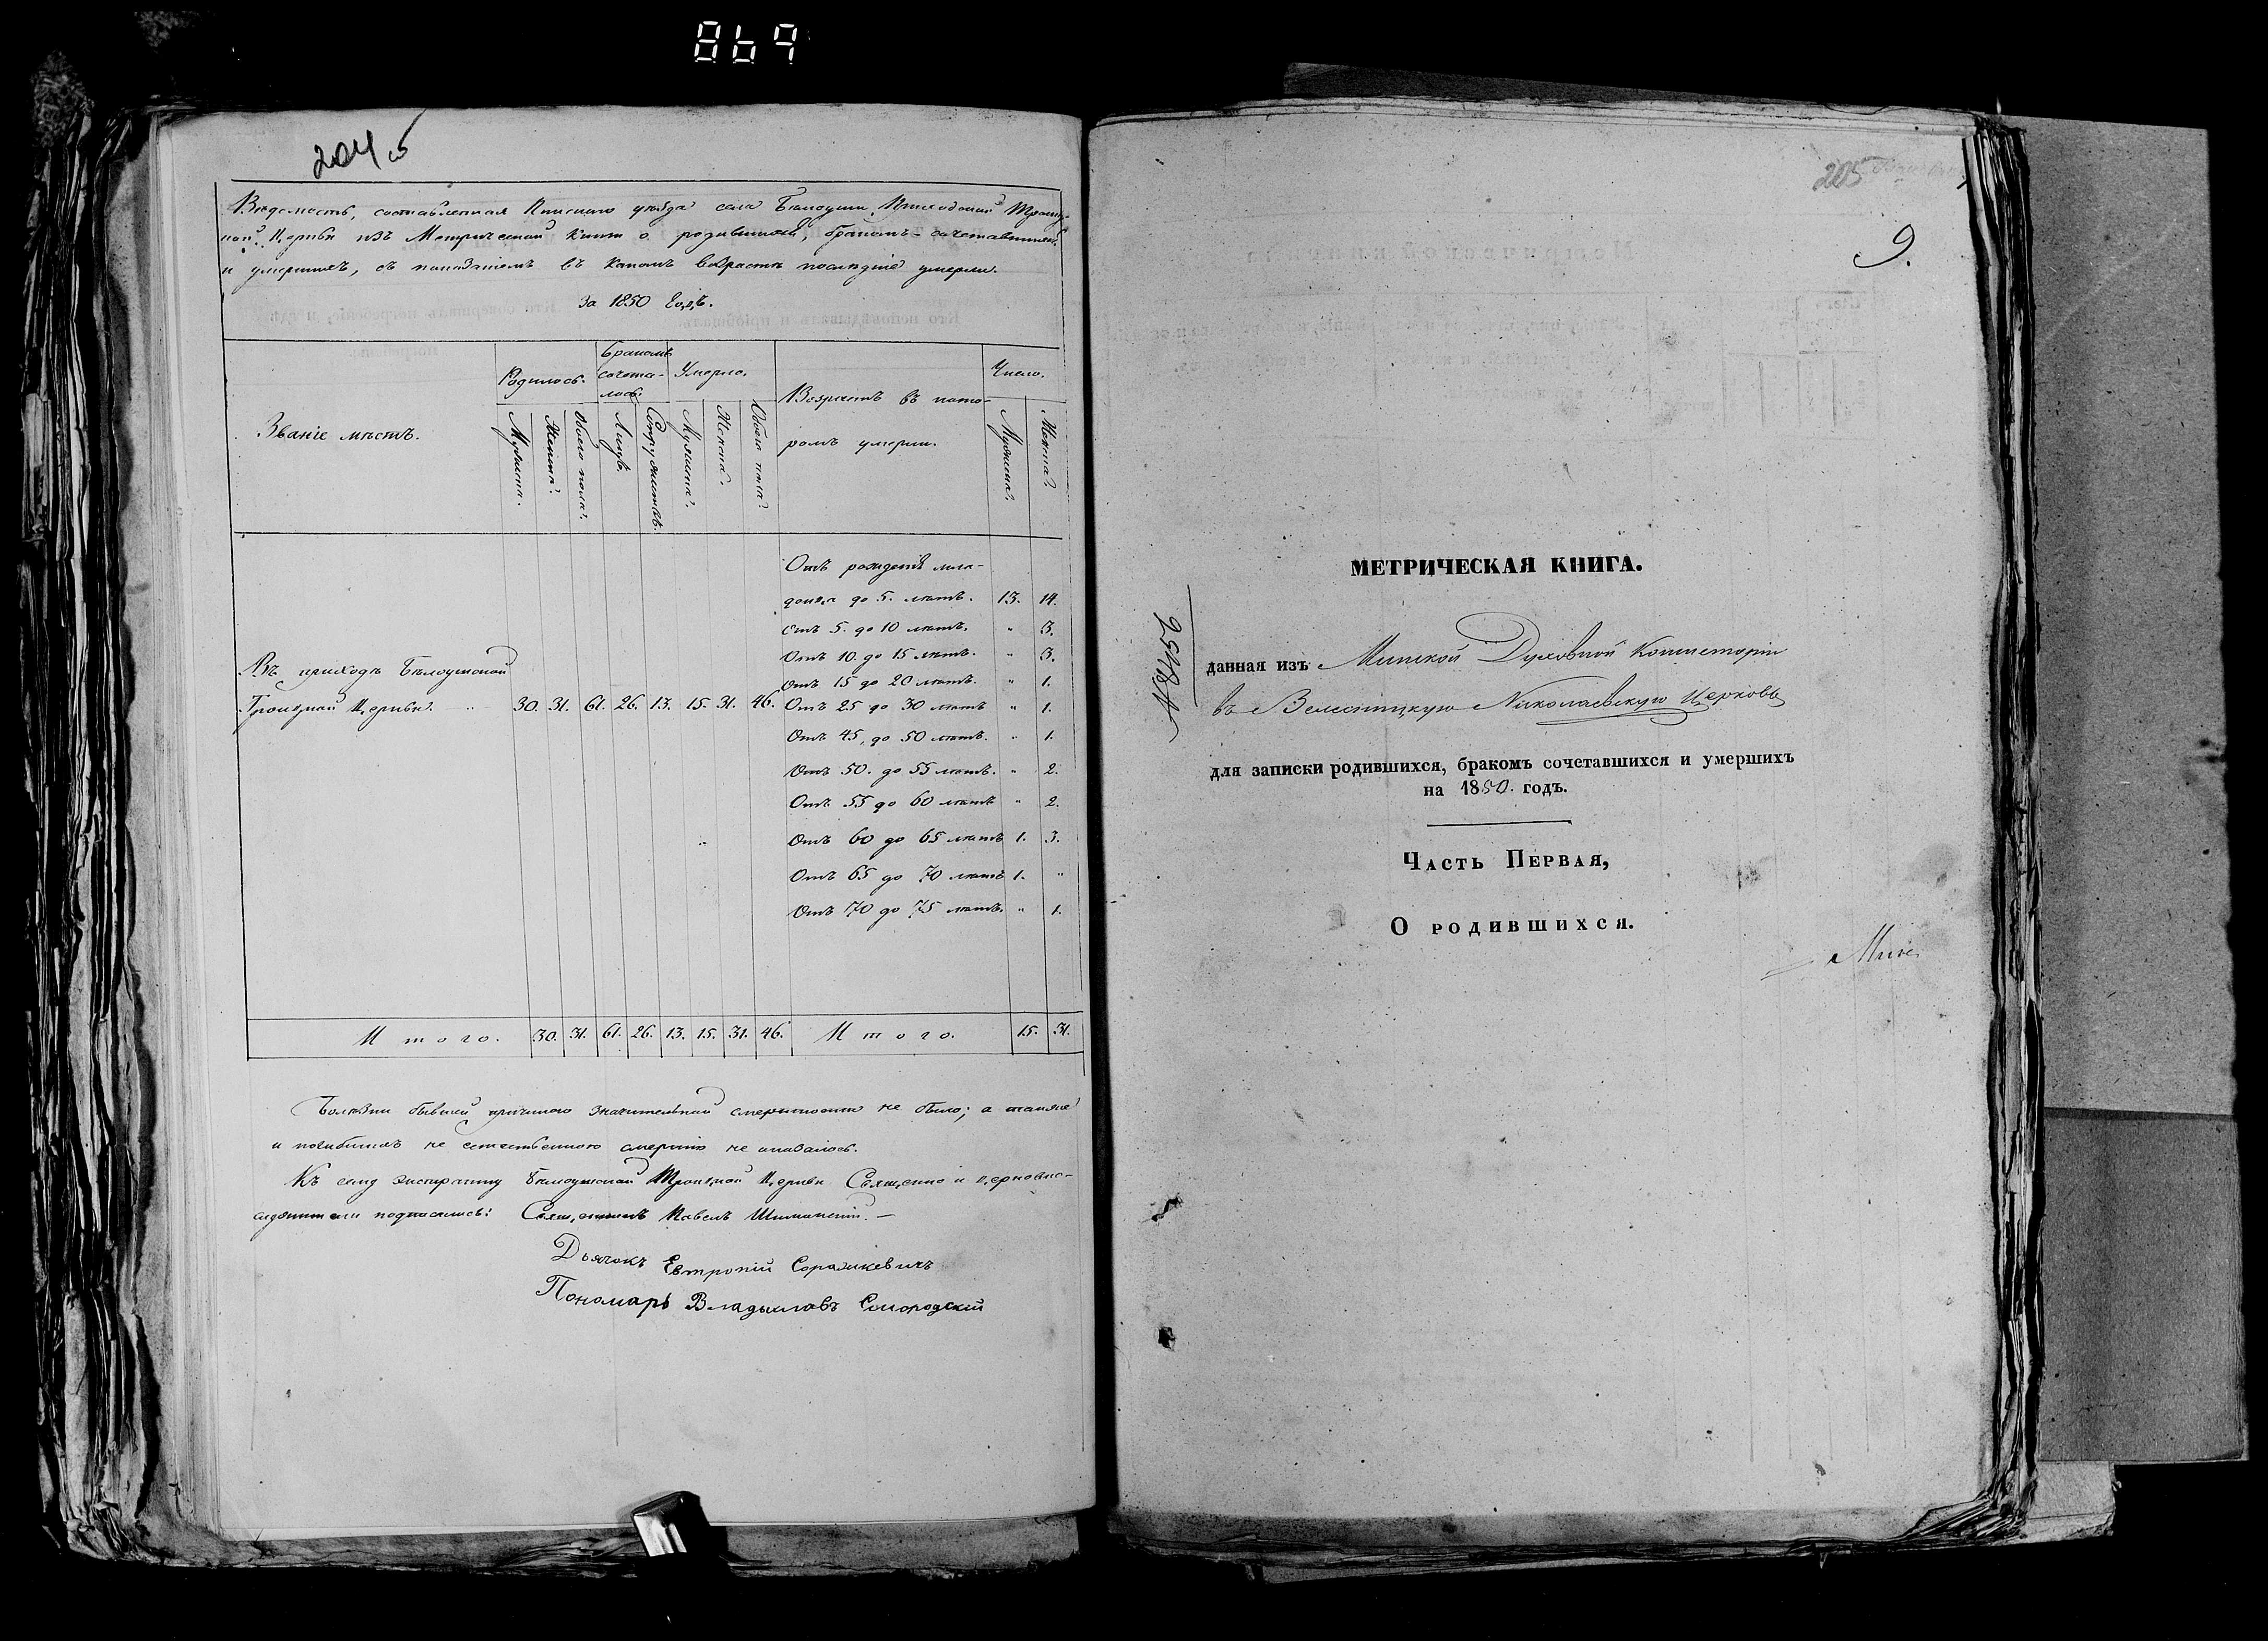 869
204 об
Ведомость, составленная Пинскаго уѣзда села Бѣлоуши, Приходской Троиц-
кой Церкви изъ Метрической книги о родившихся, бракомъ-сочетавшихся
и умершихъ, съ показаніемъ въ какомъ возрастѣ послѣдніе умерли.
За 1850 Годъ.
Званіе мѣстъ.
Родилось.
Бракомъ
сочета-
лось.
Умерло.
Возрастъ въ кото-
ромъ умерли.
Число.
Мужеска.
Женска.
Обоего пола.
Лицъ.
Супружествъ.
Мужеска.
Женска.
Обоего пола.
Мужеска.
Женска.
Отъ рожденія мла-
денца до 5. лѣтъ. 13. 14.
Отъ 5. до 10 лѣтъ. " 3.
Отъ 10. до 15 лѣтъ. " 3.
Отъ 15 до 20 лѣтъ. " 1.
Въ приходѣ Бѣлоушской
Троицкой Церкви. 30. 31. 61. 26. 13. 15. 31. 46. Отъ 25 до 30 лѣтъ " 1.
Отъ 45, до 50 лѣтъ. " 1.
Отъ 50. до 55 лѣтъ. " 2.
Отъ 55 до 60 лѣтъ " 2.
Отъ 60 до 65 лѣтъ 1. 3.
Отъ 65 до 70 лѣтъ 1. "
Отъ 70 до 75 лѣтъ. " 1.
Итого. 30. 31. 61. 26. 13. 15. 31. 46. Итого. 15. 31.
Болѣзни бывшей причиною значительной смертности не было; а также
и погибшихъ не естественною смертію не оказалось.
Къ сему экстракту Бѣлоушской Троицкой Церкви Священно и церковно-
служители подписались: Священникъ Павелъ Шиманскій.—
Дьячокъ Евтропій Соражкевичъ
Пономарь Владыславъ Смородскій
205
9.
МЕТРИЧЕСКАЯ КНИГА.
данная изъ Минской Духовной Консисторіи
въ Велесницкую Николаевскую Церковь
для записки родившихся, бракомъ сочетавшихся и умершихъ
на 1850. годъ.
Часть Первая,
О родившихся.